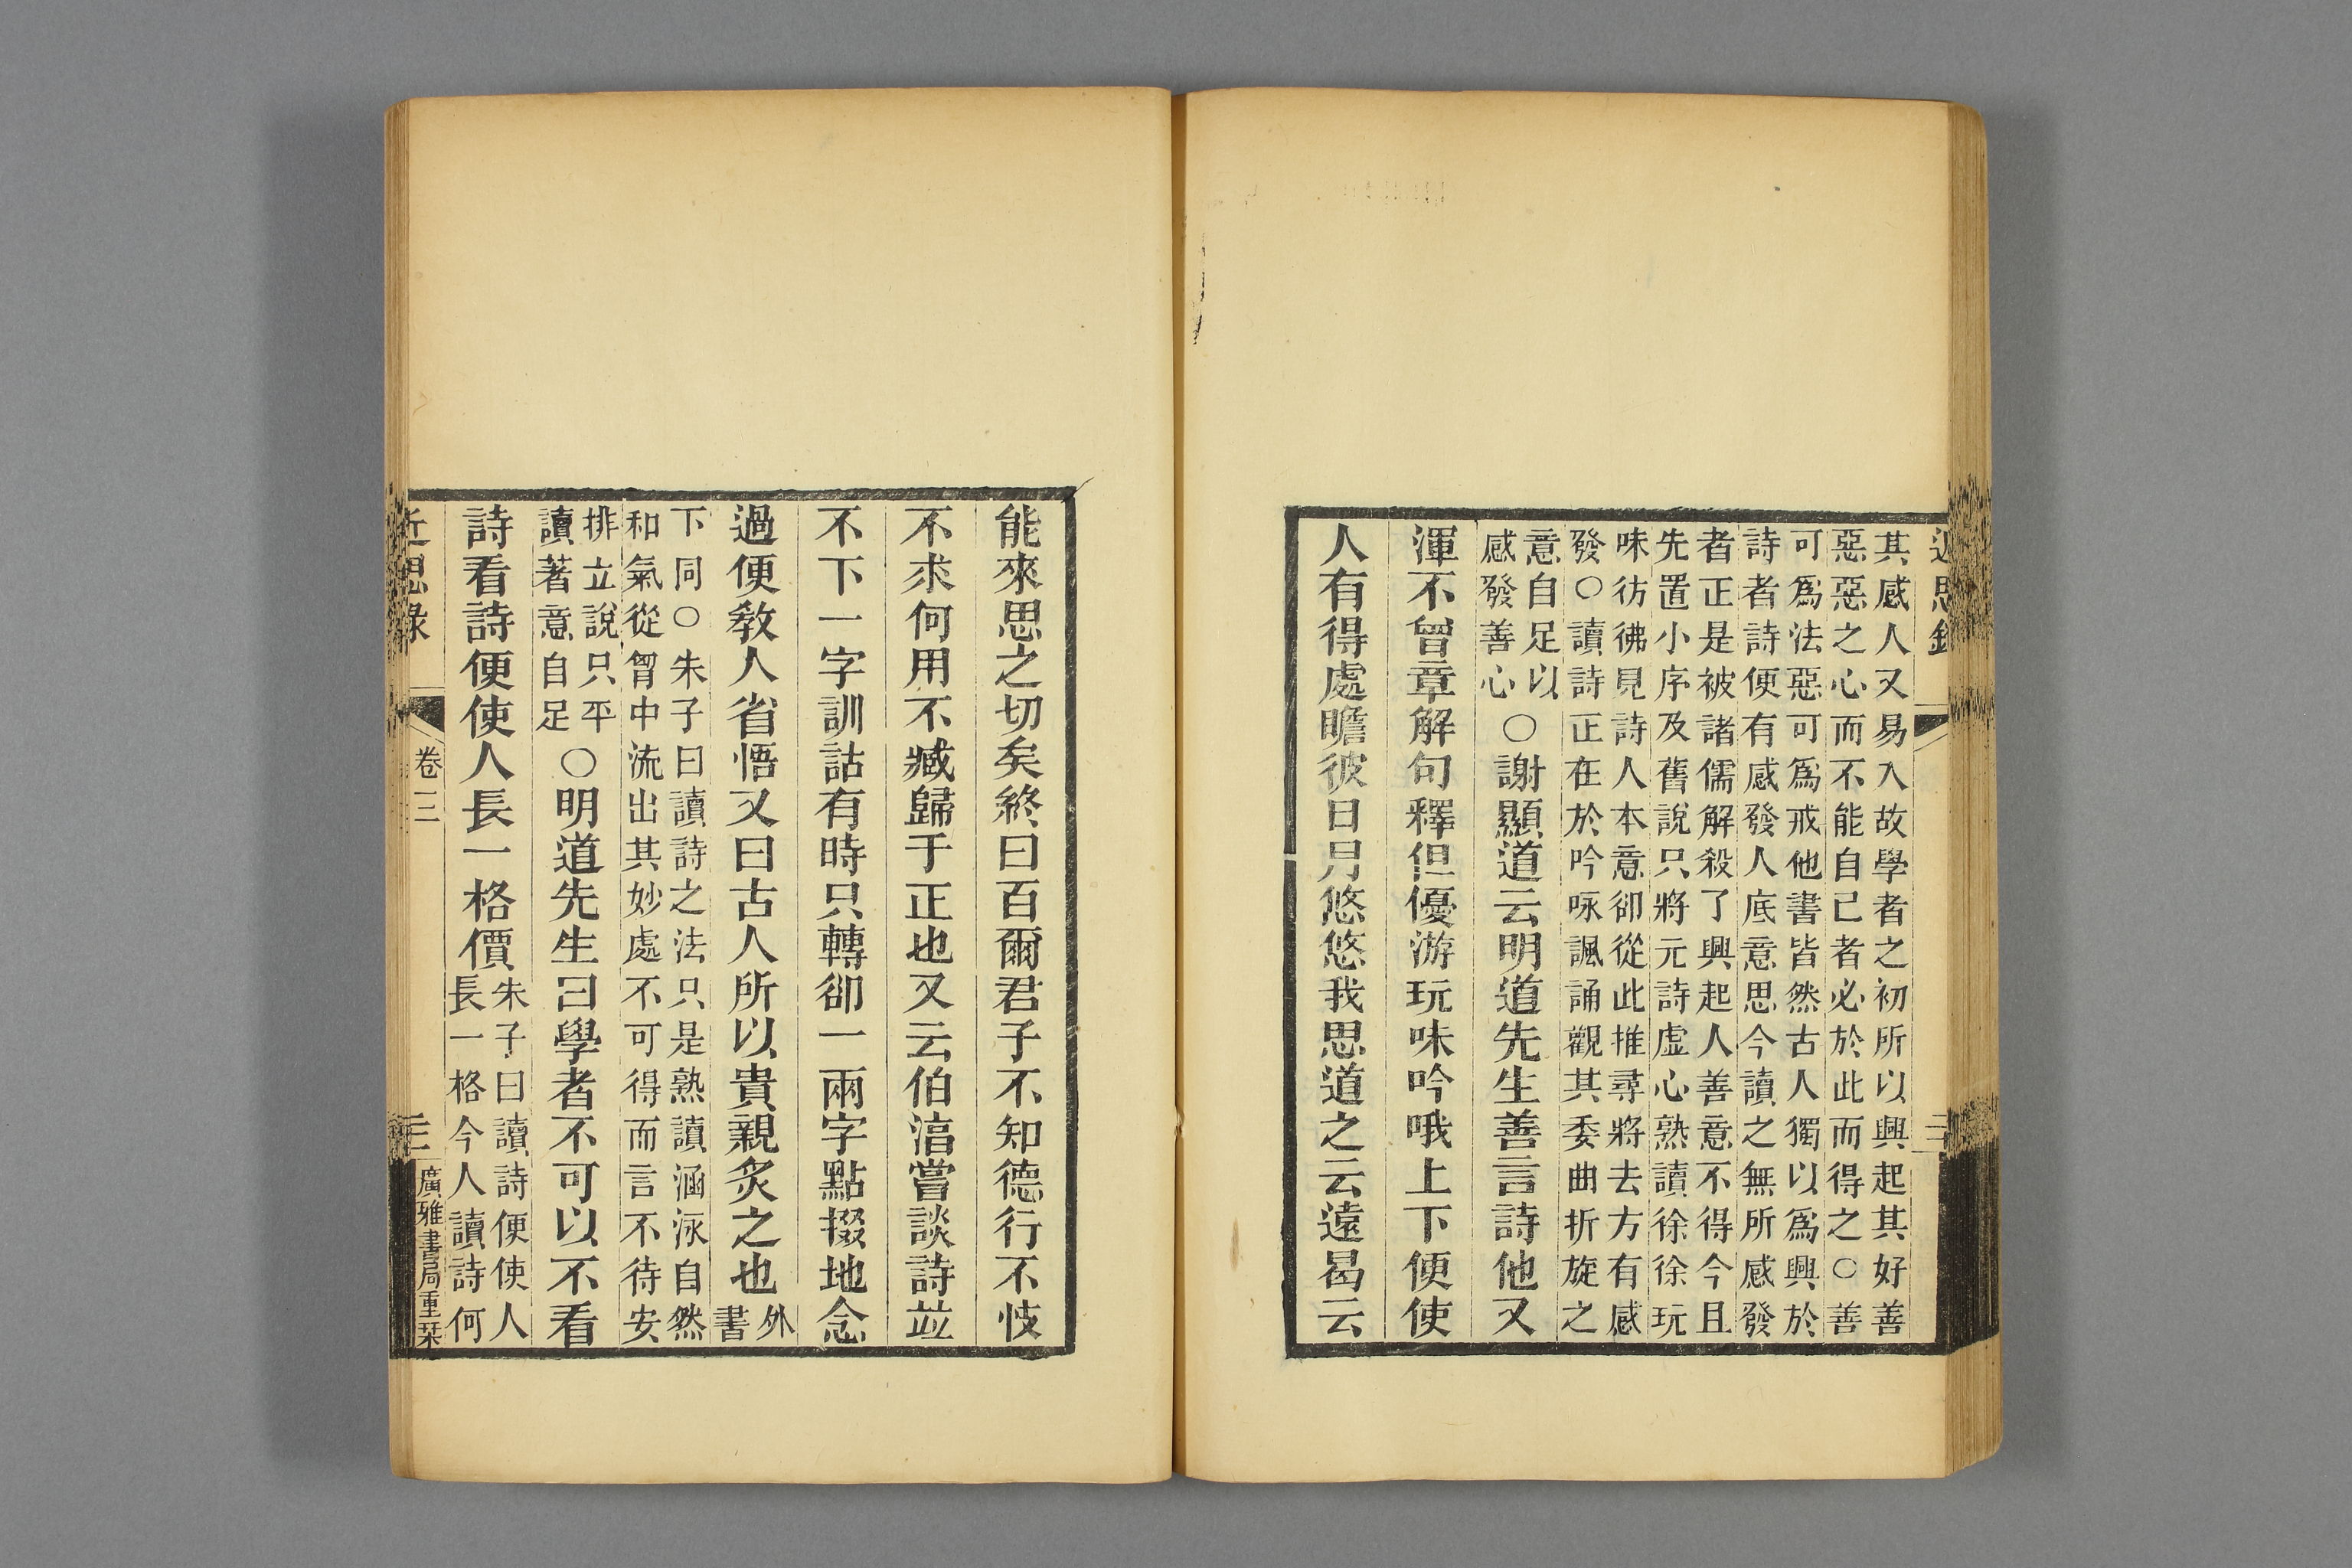 近思錄
三
其感人又易入故學者之初所以興起其好善
惡惡之心而不能自已者必於此而得之○善
可爲法惡可爲戒他書皆然古人獨以爲興於
詩者詩便有感發人底意思今讀之無所感發
者正是被諸儒解殺了興起人善意不得今且
先置小序及舊說只將元詩虛心熟讀徐徐玩
味彷彿見詩人本意卻從此推尋將去方有感
發○讀詩正在於吟咏諷誦觀其委曲折旋之
意自足以
感發善心
○謝顯道云明道先生善言詩他又
渾不曾章解句釋但優游玩味吟哦上下便使
人有得處瞻彼日月悠悠我思道之云遠曷云
能來思之切矣終曰百爾君子不知德行不忮
不求何用不臧歸于正也又云伯湻嘗談詩並
不下一字訓詁有時只轉卻一兩字點掇地念
過便敎人省悟又曰古人所以貴親炙之也
外
書
下同○朱子曰讀詩之法只是熟讀涵泳自然
和氣從胷中流出其妙處不可得而言不待安
排立說只平
讀著意自足
○明道先生曰學者不可以不看
詩看詩便使人長一格價
朱子曰讀詩便使人
長一格今人讀詩何
近思錄
卷三
三
廣雅書局重栞